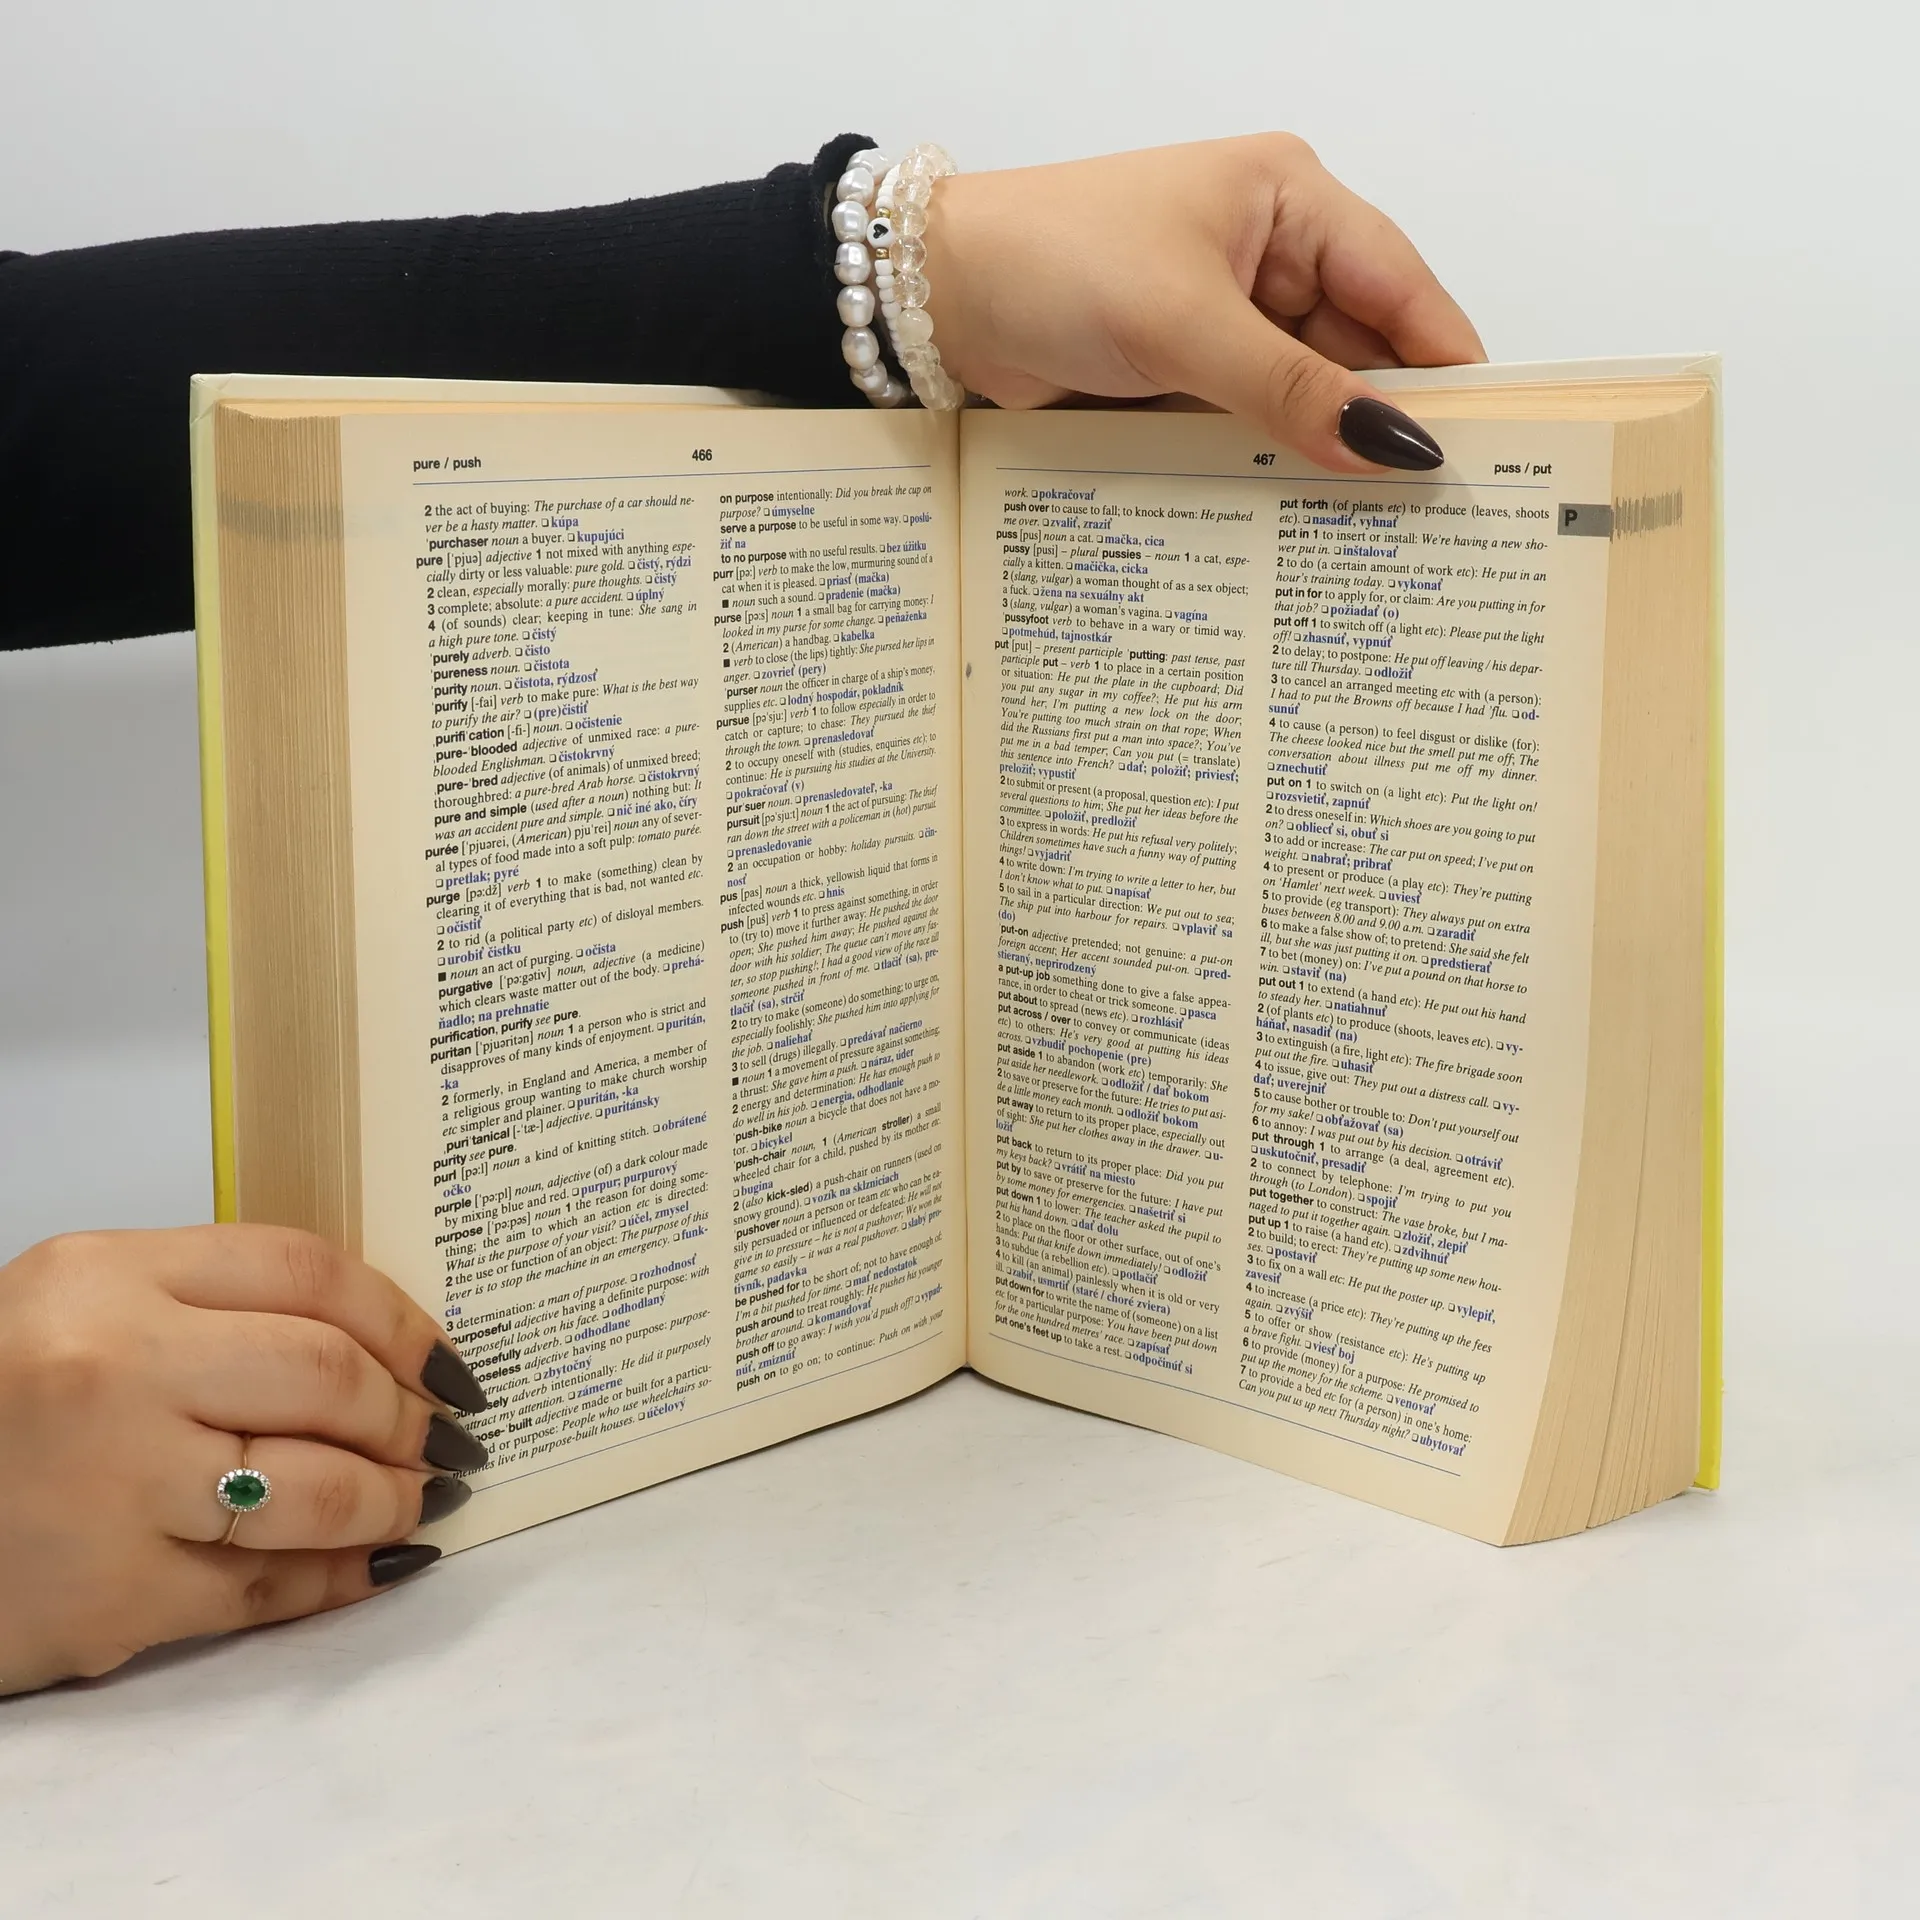 pure / push
466
2 the act of buying: The purchase of a car should ne-
ver be a hasty matter. ❑ kúpa
ˈpurchaser noun a buyer. ❑ kupujúci
pure [ˈpjuə] adjective 1 not mixed with anything espe-
cially dirty or less valuable: pure gold. ❑ čistý, rýdzi
2 clean, especially morally: pure thoughts. ❑ čistý
3 complete; absolute: a pure accident. ❑ úplný
4 (of sounds) clear; keeping in tune: She sang in
a high pure tone. ❑ čistý
ˈpurely adverb. ❑ čisto
ˈpureness noun. ❑ čistota
ˈpurity noun. ❑ čistota, rýdzosť
ˈpurify [-fai] verb to make pure: What is the best way
to purify the air? ❑ (pre)čistiť
ˌpurifiˈcation [-fi-] noun. ❑ očistenie
ˌpure-ˈblooded adjective of unmixed race: a pure-
blooded Englishman. ❑ čistokrvný
ˌpure-ˈbred adjective (of animals) of unmixed breed;
thoroughbred: a pure-bred Arab horse. ❑ čistokrvný
pure and simple (used after a noun) nothing but: It
was an accident pure and simple. ❑ nič iné ako, číry
purée [ˈpjuərei, (American) pjuˈrei] noun any of sever-
al types of food made into a soft pulp: tomato purée.
❑ pretlak; pyré
purge [pəːdž] verb 1 to make (something) clean by
clearing it of everything that is bad, not wanted etc.
❑ očistiť
2 to rid (a political party etc) of disloyal members.
❑ urobiť čistku
■ noun an act of purging. ❑ očista
purgative [ˈpəːgətiv] noun, adjective (a medicine)
which clears waste matter out of the body. ❑ prehá-
ňadlo; na prehnatie
purification, purify see pure.
puritan [ˈpjuəritən] noun 1 a person who is strict and
disapproves of many kinds of enjoyment. ❑ puritán,
-ka
2 formerly, in England and America, a member of
a religious group wanting to make church worship
etc simpler and plainer. ❑ puritán, -ka
ˌpuriˈtanical [-ˈtæ-] adjective. ❑ puritánsky
purity see pure.
purl [pəːl] noun a kind of knitting stitch. ❑ obrátené
očko
purple [ˈpəːpl] noun, adjective (of) a dark colour made
by mixing blue and red. ❑ purpur; purpurový
purpose [ˈpəːpəs] noun 1 the reason for doing some-
thing; the aim to which an action etc is directed:
What is the purpose of your visit? ❑ účel, zmysel
2 the use or function of an object: The purpose of this
lever is to stop the machine in an emergency. ❑ funk-
cia
3 determination: a man of purpose. ❑ rozhodnosť
purposeful adjective having a definite purpose: with
purposeful look on his face. ❑ odhodlaný
posefully adverb. ❑ odhodlane
oseless adjective having no purpose: purpose-
struction. ❑ zbytočný
sely adverb intentionally: He did it purposely
attract my attention. ❑ zámerne
pose-ˈbuilt adjective made or built for a particu-
d or purpose: People who use wheelchairs so-
metimes live in purpose-built houses. ❑ účelový
on purpose intentionally: Did you break the cup on
purpose? ❑ úmyselne
serve a purpose to be useful in some way. ❑ poslú-
žiť na
to no purpose with no useful results. ❑ bez úžitku
purr [pəː] verb to make the low, murmuring sound of a
cat when it is pleased. ❑ priasť (mačka)
■ noun such a sound. ❑ pradenie (mačka)
purse [pəːs] noun 1 a small bag for carrying money: I
looked in my purse for some change. ❑ peňaženka
2 (American) a handbag. ❑ kabelka
■ verb to close (the lips) tightly: She pursed her lips in
anger. ❑ zovrieť (pery)
ˈpurser noun the officer in charge of a ship's money,
supplies etc. ❑ lodný hospodár, pokladník
pursue [pəˈsjuː] verb 1 to follow especially in order to
catch or capture; to chase: They pursued the thief
through the town. ❑ prenasledovať
2 to occupy oneself with (studies, enquiries etc); to
continue: He is pursuing his studies at the University.
❑ pokračovať (v)
purˈsuer noun. ❑ prenasledovateľ, -ka
pursuit [pəˈsjuːt] noun 1 the act of pursuing: The thief
ran down the street with a policeman in (hot) pursuit.
❑ prenasledovanie
2 an occupation or hobby: holiday pursuits. ❑ čin-
nosť
pus [pas] noun a thick, yellowish liquid that forms in
infected wounds etc. ❑ hnis
push [puš] verb 1 to press against something, in order
to (try to) move it further away: He pushed the door
open; She pushed him away; He pushed against the
door with his soldier; The queue can't move any fas-
ter, so stop pushing!; I had a good view of the race till
someone pushed in front of me. ❑ tlačiť (sa), pre-
tlačiť (sa), strčiť
2 to try to make (someone) do something; to urge on,
especially foolishly: She pushed him into applying for
the job. ❑ naliehať
3 to sell (drugs) illegally. ❑ predávať načierno
■ noun 1 a movement of pressure against something;
a thrust: She gave him a push. ❑ náraz, úder
2 energy and determination: He has enough push to
do well in his job. ❑ energia, odhodlanie
ˈpush-bike noun a bicycle that does not have a mo-
tor. ❑ bicykel
ˈpush-chair noun, 1 (American stroller) a small
wheeled chair for a child, pushed by its mother etc.
❑ bugina
2 (also kick-sled) a push-chair on runners (used on
snowy ground). ❑ vozík na sklzniciach
ˈpushover noun a person or team etc who can be ea-
sily persuaded or influenced or defeated: He will not
give in to pressure – he is not a pushover; We won the
game so easily – it was a real pushover. ❑ slabý pro-
tivník, padavka
be pushed for to be short of; not to have enough of:
I'm a bit pushed for time. ❑ mať nedostatok
push around to treat roughly: He pushes his younger
brother around. ❑ komandovať
push off to go away: I wish you'd push off! ❑ vypad-
núť, zmiznúť
push on to go on; to continue: Push on with your
467
puss / put
P
work. ❑ pokračovať
push over to cause to fall; to knock down: He pushed
me over. ❑ zvaliť, zraziť
puss [pus] noun a cat. ❑ mačka, cica
pussy [pusi] – plural pussies – noun 1 a cat, espe-
cially a kitten. ❑ mačička, cicka
2 (slang, vulgar) a woman thought of as a sex object;
a fuck. ❑ žena na sexuálny akt
3 (slang, vulgar) a woman's vagina. ❑ vagína
ˈpussyfoot verb to behave in a wary or timid way.
❑ potmehúd, tajnostkár
put [put] – present participle ˈputting: past tense, past
participle put – verb 1 to place in a certain position
or situation: He put the plate in the cupboard; Did
you put any sugar in my coffee?; He put his arm
round her; I'm putting a new lock on the door;
You're putting too much strain on that rope; When
did the Russians first put a man into space?; You've
put me in a bad temper; Can you put (= translate)
this sentence into French? ❑ dať; položiť; priviesť;
preložiť; vypustiť
2 to submit or present (a proposal, question etc): I put
several questions to him; She put her ideas before the
committee. ❑ položiť, predložiť
3 to express in words: He put his refusal very politely;
Children sometimes have such a funny way of putting
things! ❑ vyjadriť
4 to write down: I'm trying to write a letter to her, but
I don't know what to put. ❑ napísať
5 to sail in a particular direction: We put out to sea;
The ship put into harbour for repairs. ❑ vplaviť sa
(do)
ˈput-on adjective pretended; not genuine: a put-on
foreign accent; Her accent sounded put-on. ❑ pred-
stieraný, neprirodzený
a put-up job something done to give a false appea-
rance, in order to cheat or trick someone. ❑ pasca
put about to spread (news etc). ❑ rozhlásiť
put across / over to convey or communicate (ideas
etc) to others: He's very good at putting his ideas
across. ❑ vzbudiť pochopenie (pre)
put aside 1 to abandon (work etc) temporarily: She
put aside her needlework. ❑ odložiť / dať bokom
2 to save or preserve for the future: He tries to put asi-
de a little money each month. ❑ odložiť bokom
put away to return to its proper place, especially out
of sight: She put her clothes away in the drawer. ❑ u-
ložiť
put back to return to its proper place: Did you put
my keys back? ❑ vrátiť na miesto
put by to save or preserve for the future: I have put
by some money for emergencies. ❑ našetriť si
put down 1 to lower: The teacher asked the pupil to
put his hand down. ❑ dať dolu
2 to place on the floor or other surface, out of one's
hands: Put that knife down immediately! ❑ odložiť
3 to subdue (a rebellion etc). ❑ potlačiť
4 to kill (an animal) painlessly when it is old or very
ill. ❑ zabiť, usmrtiť (staré / choré zviera)
put down for to write the name of (someone) on a list
etc for a particular purpose: You have been put down
for the one hundred metres' race. ❑ zapísať
put one's feet up to take a rest. ❑ odpočinúť si
put forth (of plants etc) to produce (leaves, shoots
etc). ❑ nasadiť, vyhnať
put in 1 to insert or install: We're having a new sho-
wer put in. ❑ inštalovať
2 to do (a certain amount of work etc): He put in an
hour's training today. ❑ vykonať
put in for to apply for, or claim: Are you putting in for
that job? ❑ požiadať (o)
put off 1 to switch off (a light etc): Please put the light
off! ❑ zhasnúť, vypnúť
2 to delay; to postpone: He put off leaving / his depar-
ture till Thursday. ❑ odložiť
3 to cancel an arranged meeting etc with (a person):
I had to put the Browns off because I had 'flu. ❑ od-
sunúť
4 to cause (a person) to feel disgust or dislike (for):
The cheese looked nice but the smell put me off; The
conversation about illness put me off my dinner.
❑ znechutiť
put on 1 to switch on (a light etc): Put the light on!
❑ rozsvietiť, zapnúť
2 to dress oneself in: Which shoes are you going to put
on? ❑ obliecť si, obuť si
3 to add or increase: The car put on speed; I've put on
weight. ❑ nabrať; pribrať
4 to present or produce (a play etc): They're putting
on 'Hamlet' next week. ❑ uviesť
5 to provide (eg transport): They always put on extra
buses between 8.00 and 9.00 a.m. ❑ zaradiť
6 to make a false show of; to pretend: She said she felt
ill, but she was just putting it on. ❑ predstierať
7 to bet (money) on: I've put a pound on that horse to
win. ❑ staviť (na)
put out 1 to extend (a hand etc): He put out his hand
to steady her. ❑ natiahnuť
2 (of plants etc) to produce (shoots, leaves etc). ❑ vy-
háňať, nasadiť (na)
3 to extinguish (a fire, light etc): The fire brigade soon
put out the fire. ❑ uhasiť
4 to issue, give out: They put out a distress call. ❑ vy-
dať; uverejniť
5 to cause bother or trouble to: Don't put yourself out
for my sake! ❑ obťažovať (sa)
6 to annoy: I was put out by his decision. ❑ otráviť
put through 1 to arrange (a deal, agreement etc).
❑ uskutočniť, presadiť
2 to connect by telephone: I'm trying to put you
through (to London). ❑ spojiť
put together to construct: The vase broke, but I ma-
naged to put it together again. ❑ zložiť, zlepiť
put up 1 to raise (a hand etc). ❑ zdvihnúť
2 to build; to erect: They're putting up some new hou-
ses. ❑ postaviť
3 to fix on a wall etc: He put the poster up. ❑ vylepiť,
zavesiť
4 to increase (a price etc): They're putting up the fees
again. ❑ zvýšiť
5 to offer or show (resistance etc): He's putting up
a brave fight. ❑ viesť boj
6 to provide (money) for a purpose: He promised to
put up the money for the scheme. ❑ venovať
7 to provide a bed etc for (a person) in one's home:
Can you put us up next Thursday night? ❑ ubytovať